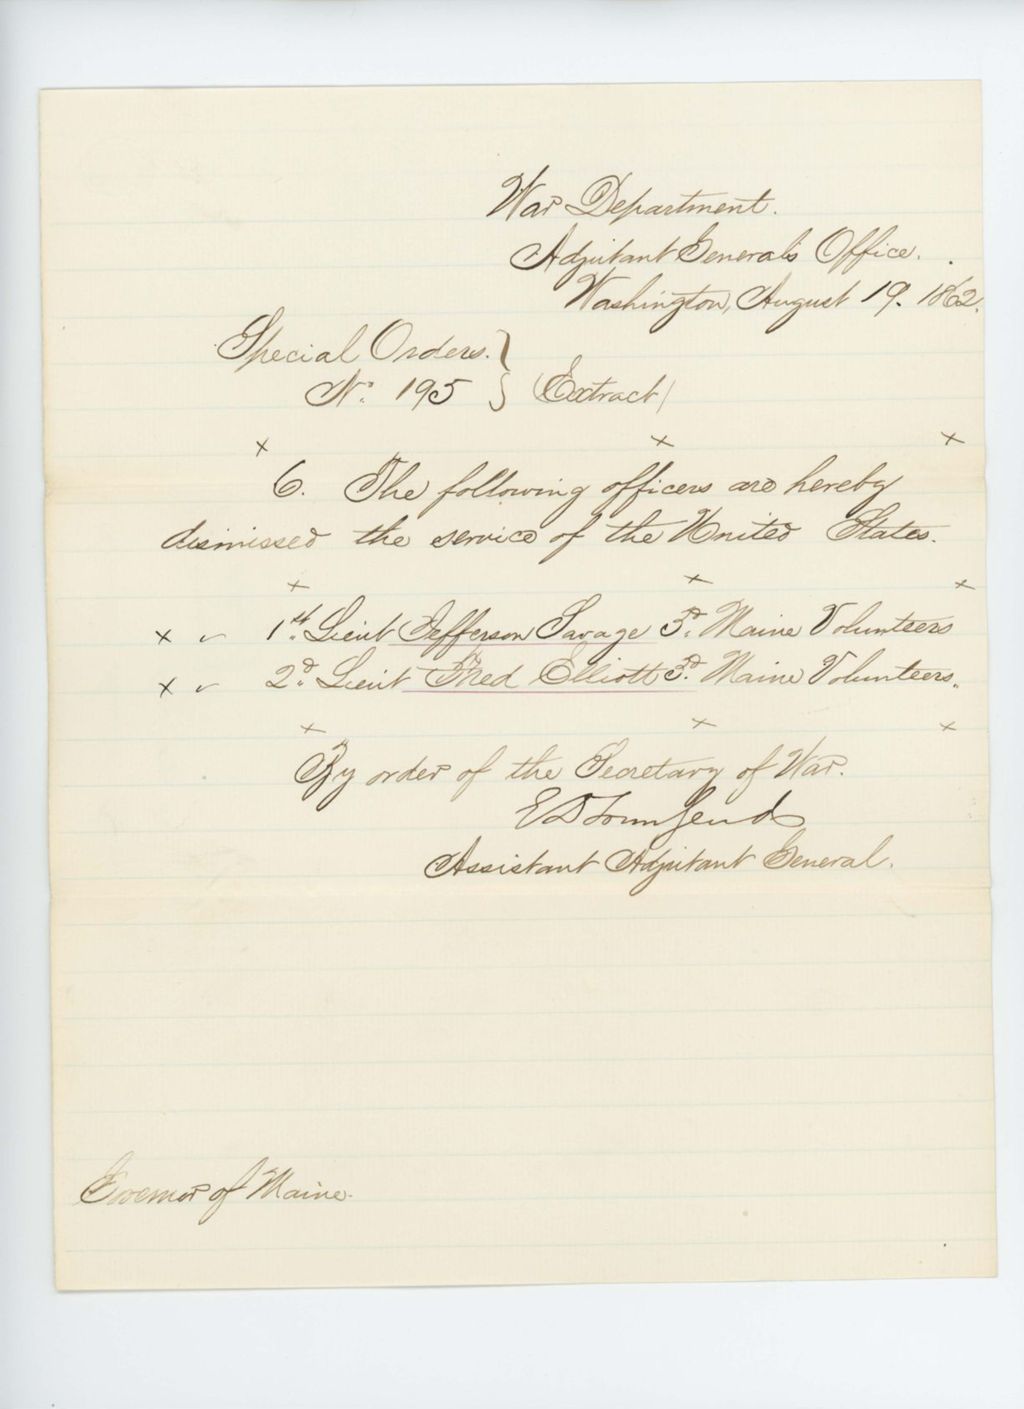 War Department.
Adjutant General's Office.
Washington, August 19. 1862.
Special Orders. }
No. 195 } (Extract)
x x x
6. The following officers are hereby
dismissed the service of the United States.
x x x
x ✓ 1st. Lieut Jefferson Savage 3d. Maine Volunteers
x ✓ 2d. Lieut Fred Elliott 3d. Maine Volunteers.
x x x
By order of the Secretary of War.
E D Townsend
Assistant Adjutant General.
Governor of Maine.